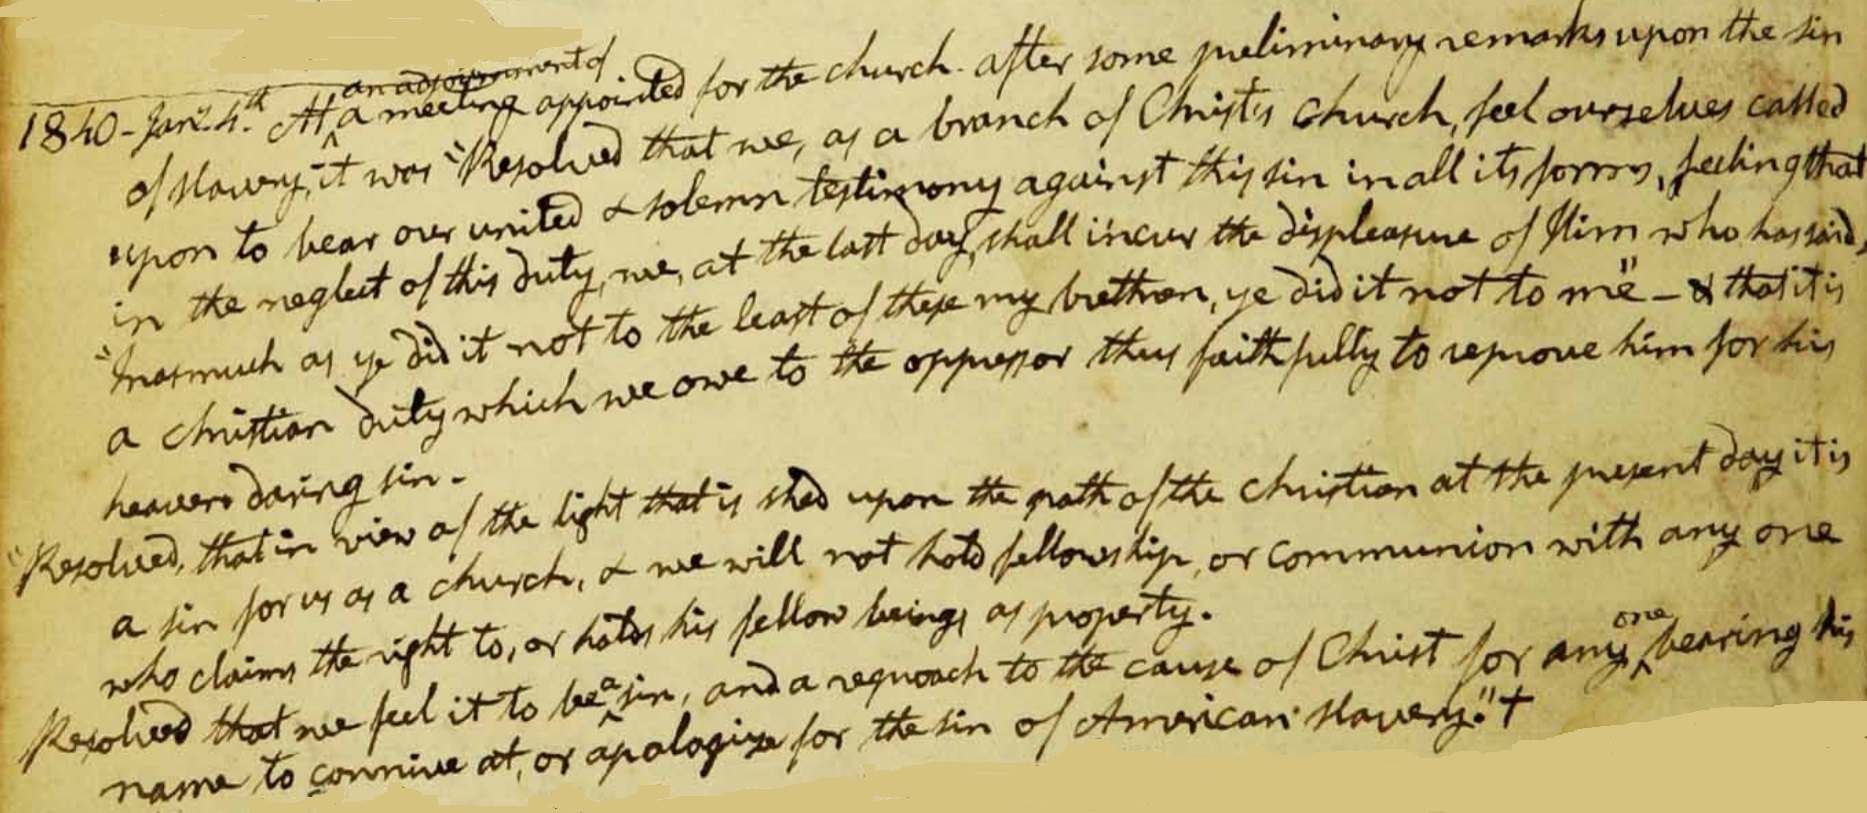 1840 - Jany. 4.th At an adjournment of a meeting appointed for the church. after some preliminary remarks upon the sin
of slavery, it was "Resolved that we, as a branch of Christ's Church, feel ourselves called
upon to bear our united & solemn testimony against this sin in all its forms, feeling that
in the neglect of this duty, we, at the last day, shall incur the displeasure of Him who has said,
"Inasmuch as ye did it not to the least of these my brethren, ye did it not to me" - & that it is
a christian duty which we owe to the oppressor thus faithfully to reprove him for his
heaven daring sin.
"Resolved, that in view of the light that is shed upon the path of the Christian at the present day it is
a sin for us as a church, & we will not hold fellowship, or communion with any one
who claims the right to, or holds his fellow beings as property.
Resolved that we feel it to be a sin, and a reproach to the cause of Christ for any one bearing his
name to connive at, or apologize for the sin of American slavery." †